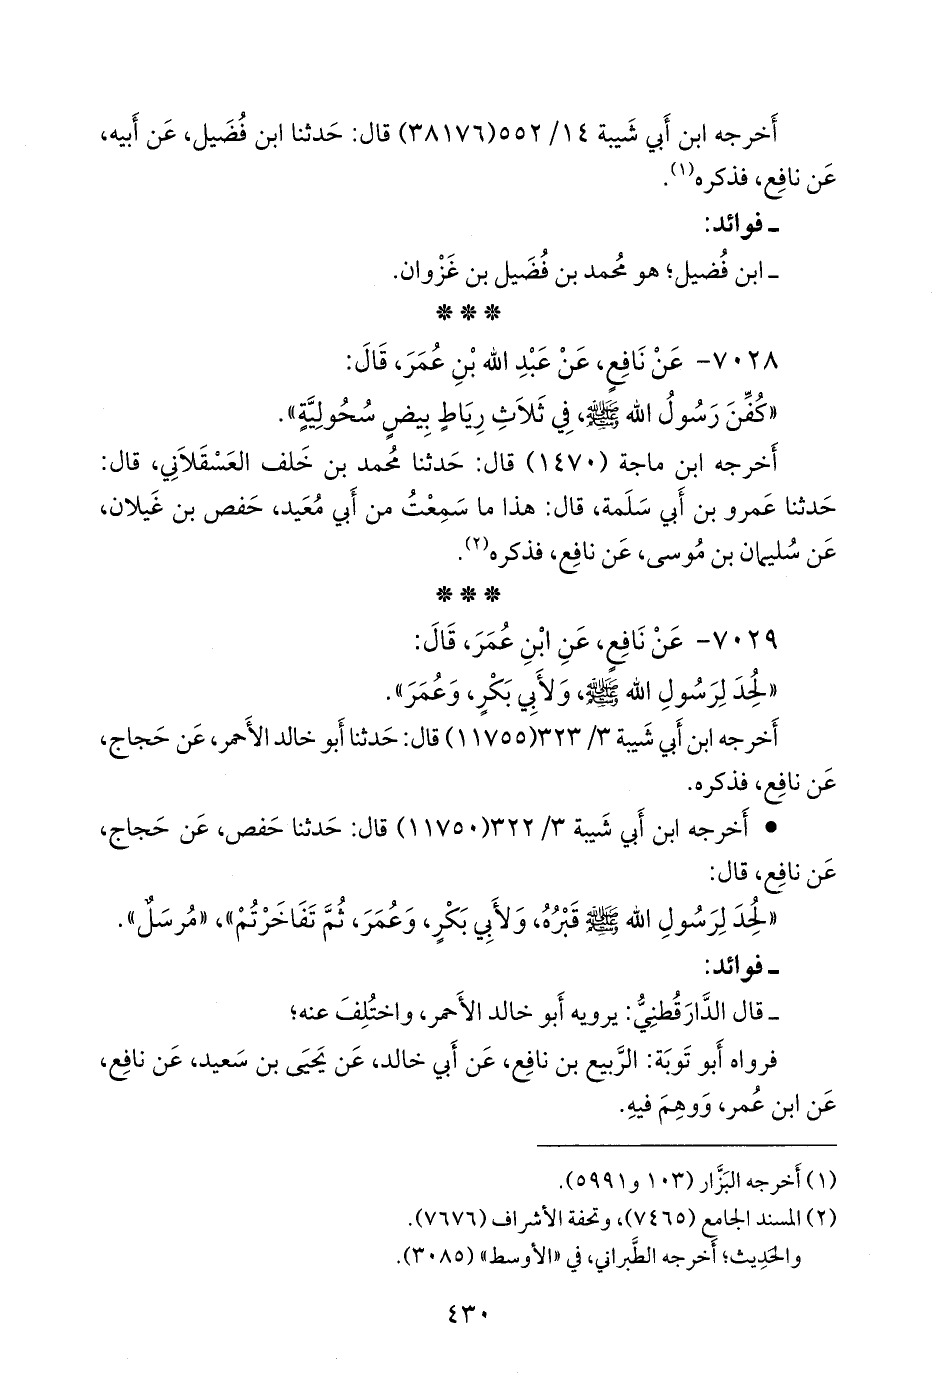 أَخرجه ابن أَبي شَيبة ١٤/ ٥٥٢(٣٨١٧٦) قال: حَدثنا ابن فُضَيل، عَن أَبيه،
عَن نافِع، فذكره(١).
ـ فوائد:
ـ ابن فُضيل؛ هو مُحمد بن فُضَيل بن غَزْوان.
* * *
٧٠٢٨- عَنْ نَافِعٍ، عَنْ عَبْدِ الله بْنِ عُمَرَ، قَالَ:
«كُفِّنَ رَسُولُ الله ﷺ، فِي ثَلاَثِ رِيَاطٍ بِيضٍ سُحُولِيَّةٍ».
أَخرجه ابن ماجة (١٤٧٠) قال: حَدثنا مُحمد بن خَلف العَسْقَلاَني، قال:
حَدثنا عَمرو بن أَبي سَلَمة، قال: هذا ما سَمِعْتُ من أَبي مُعَيد، حَفص بن غَيلان،
عَن سُليمان بن مُوسى، عَن نافِع، فذكره(٢).
* * *
٧٠٢٩- عَنْ نَافِعٍ، عَنِ ابْنِ عُمَرَ، قَالَ:
«لُحِدَ لِرَسُولِ الله ﷺ، وَلأَبِي بَكْرٍ، وَعُمَرَ».
أَخرجه ابن أَبي شَيبة ٣/ ٣٢٣(١١٧٥٥) قال: حَدثنا أَبو خالد الأَحمر، عَن حَجاج،
عَن نافِع، فذكره.
• أَخرجه ابن أَبي شَيبة ٣/ ٣٢٢(١١٧٥٠) قال: حَدثنا حَفص، عَن حَجاج،
عَن نافِع، قال:
«لُحِدَ لِرَسُولِ الله ﷺ قَبْرُهُ، وَلأَبِي بَكْرٍ، وَعُمَرَ، ثُمَّ تَفَاخَرْتُمْ»، «مُرسَلٌ».
ـ فوائد:
ـ قال الدَّارَقُطنِيُّ: يرويه أَبو خالد الأَحمر، واختُلِفَ عنه؛
فرواه أَبو تَوبَة: الرَّبيع بن نافِع، عَن أَبي خالد، عَن يَحيَى بن سَعيد، عَن نافِع،
عَن ابن عُمر، وَوهِمَ فيهِ.
(١) أَخرجه البَزَّار (١٠٣ و٥٩٩١).
(٢) المسند الجامع (٧٤٦٥)، وتحفة الأشراف (٧٦٧٦).
والحَدِيث؛ أَخرجه الطَّبراني، في «الأوسط» (٣٠٨٥).
٤٣٠